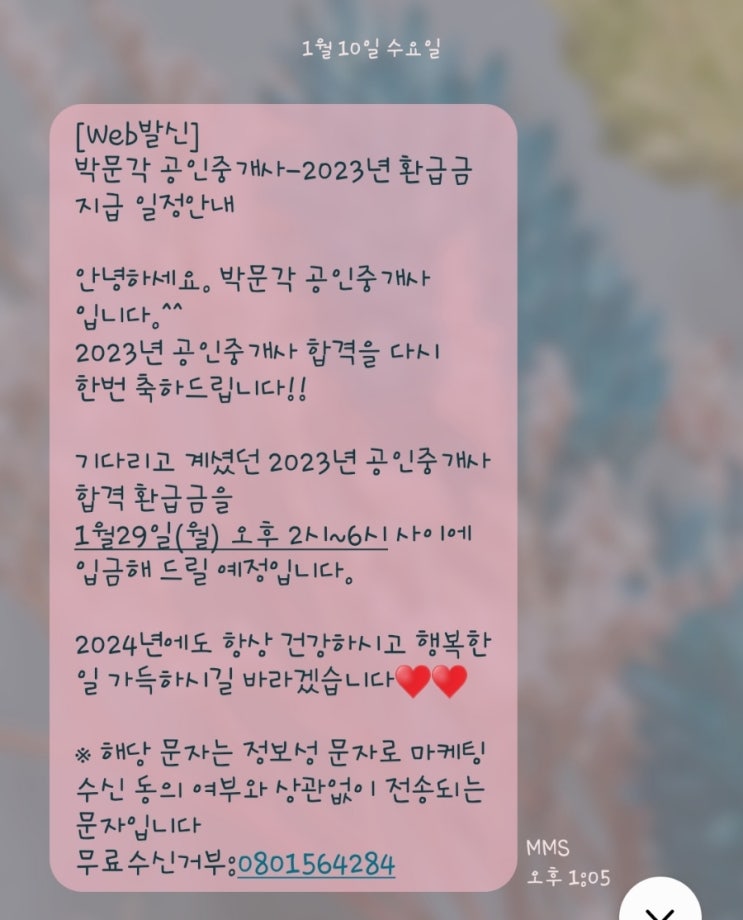 1월 10일 수요일
[Web발신]
박문각 공인중개사-2023년 환급금
지급 일정안내
안녕하세요. 박문각 공인중개사
입니다.^^
2023년 공인중개사 합격을 다시
한번 축하드립니다!!
기다리고 계셨던 2023년 공인중개사
합격 환급금을
1월29일(월) 오후 2시~6시 사이에
입금해 드릴 예정입니다.
2024년에도 항상 건강하시고 행복한
일 가득하시길 바라겠습니다❤️❤️
※ 해당 문자는 정보성 문자로 마케팅
수신 동의 여부와 상관없이 전송되는
문자입니다
무료수신거부:0801564284
MMS
오후 1:05